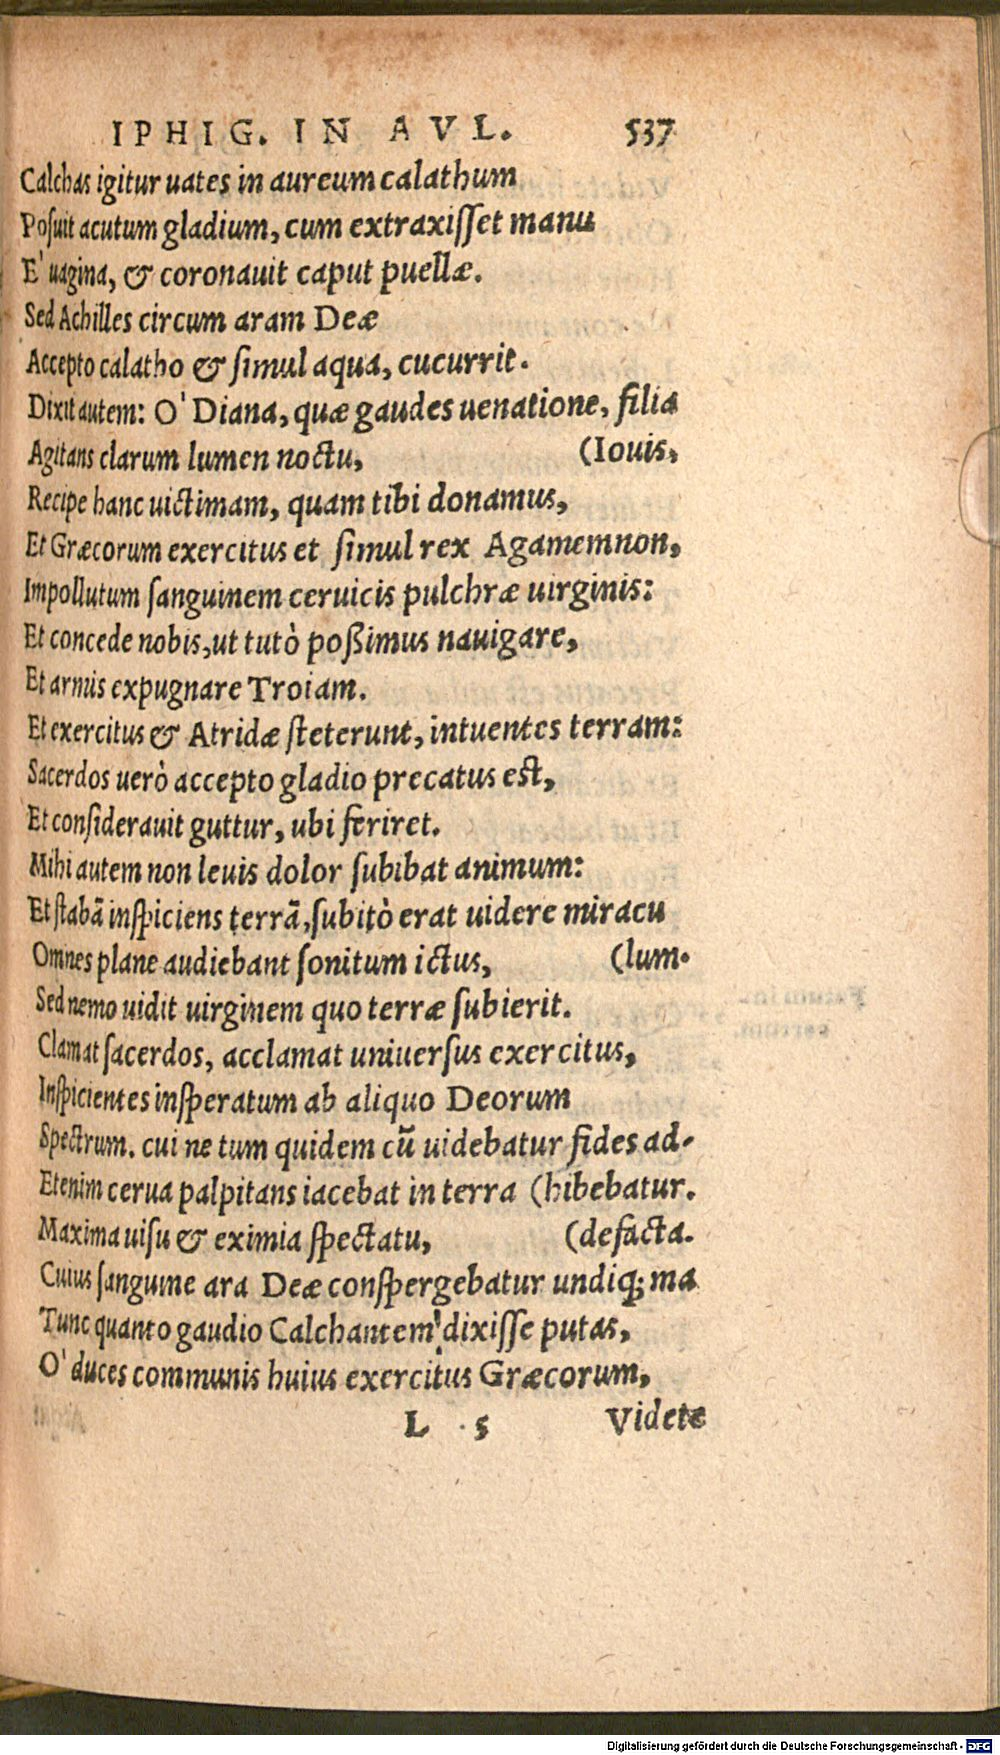 IPHIG. IN AVL. 537
Calchas igitur uates in aureum calathum
Posuit acutum gladium, cum extraxiſſet manu
E' uagina, & coronauit caput puellæ.
Sed Achilles circum aram Deæ
Accepto calatho & ſimul aqua, cucurrit.
Dixit autem: O' Diana, quæ gaudes uenatione, filia
Agitans clarum lumen noctu, (Iouis,
Recipe hanc uictimam, quam tibi donamus,
Et Græcorum exercitus et ſimul rex Agamemnon,
Impollutum ſanguinem ceruicis pulchræ uirginis:
Et concede nobis, ut tutò poßimus nauigare,
Et armis expugnare Troiam.
Et exercitus & Atridæ ſteterunt, intuentes terram:
Sacerdos uerò accepto gladio precatus eſt,
Et conſiderauit guttur, ubi feriret.
Mihi autem non leuis dolor ſubibat animum:
Et ſtabā inſpiciens terrā, ſubitò erat uidere miracu
Omnes plane audiebant ſonitum ictus, (lum.
Sed nemo uidit uirginem quo terræ ſubierit.
Clamat ſacerdos, acclamat uniuerſus exercitus,
Inſpicientes inſperatum ab aliquo Deorum
Spectrum. cui ne tum quidem cū uidebatur fides ad-
Etenim cerua palpitans iacebat in terra (hibebatur.
Maxima uiſu & eximia ſpectatu, (defacta.
Cuius ſanguine ara Deæ conſpergebatur undiq; ma
Tunc quanto gaudio Calchantem dixiſſe putas,
O' duces communis huius exercitus Græcorum,
L 5 Videte
Digitalisierung gefördert durch die Deutsche Forschungsgemeinschaft - DFG